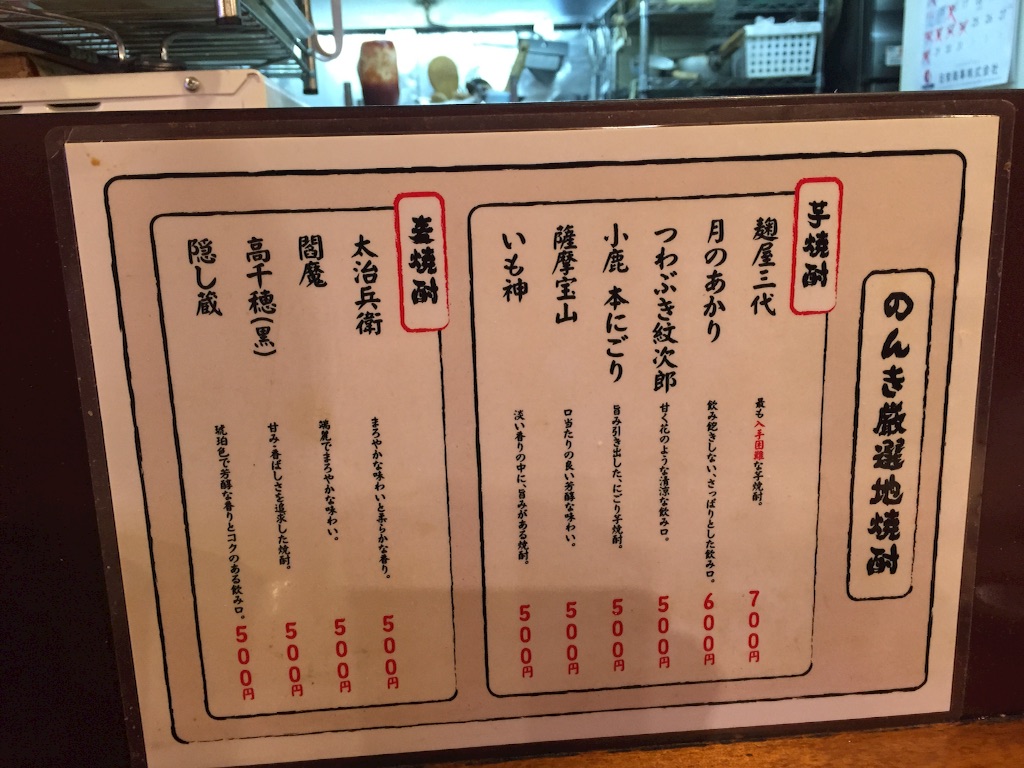 のんき厳選地焼酎
芋焼酎
麹屋三代 最も入手困難な芋焼酎。 700円
月のあかり 飲み飽きしない、さっぱりとした飲み口。 600円
つわぶき紋次郎 甘く花のような清涼な飲み口。 500円
小鹿 本にごり 旨み引き出した、にごり芋焼酎。 500円
薩摩宝山 口当たりの良い芳醇な味わい。 500円
いも神 淡い香りの中に、旨みがある焼酎。 500円
麦焼酎
太治兵衛 まろやかな味わいと柔らかな香り。 500円
閻魔 端麗でまろやかな味わい。 500円
高千穂(黒) 甘み・香ばしさを追求した焼酎。 500円
隠し蔵 琥珀色で芳醇な香りとコクのある飲み口。 500円